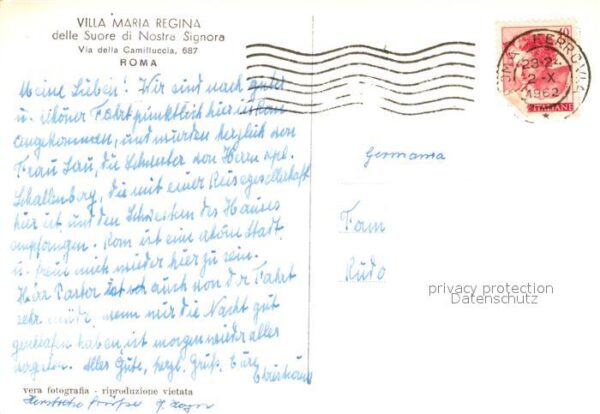 VILLA MARIA REGINA
delle Suore di Nostra Signora
Via della Camilluccia, 687
ROMA
ROMA FERROVIA
23-24
2-X
1962
ITALIANE
Meine Lieben! Wir sind nach guter
u. schöner Fahrt pünktlich hier in Rom
angekommen, und wurden herzlich von
Frau Lau, die Schwester von Herrn
Schallenberg, die mit einer Reisegesellschaft
hier ist und den Schwestern des Hauses
empfangen. Rom ist eine schöne Stadt
u. freue mich wieder hier zu sein.
Herr Pastor ist auch von der Fahrt
sehr müde, wenn wir die Nacht gut
geschlafen haben, ist morgen wieder alles
vergessen. Alles Gute, herzl. Grüße Eure
Germania
Fam
Rudo
privacy protection
Datenschutz
vera fotografia - riproduzione vietata
Herzliche Grüße